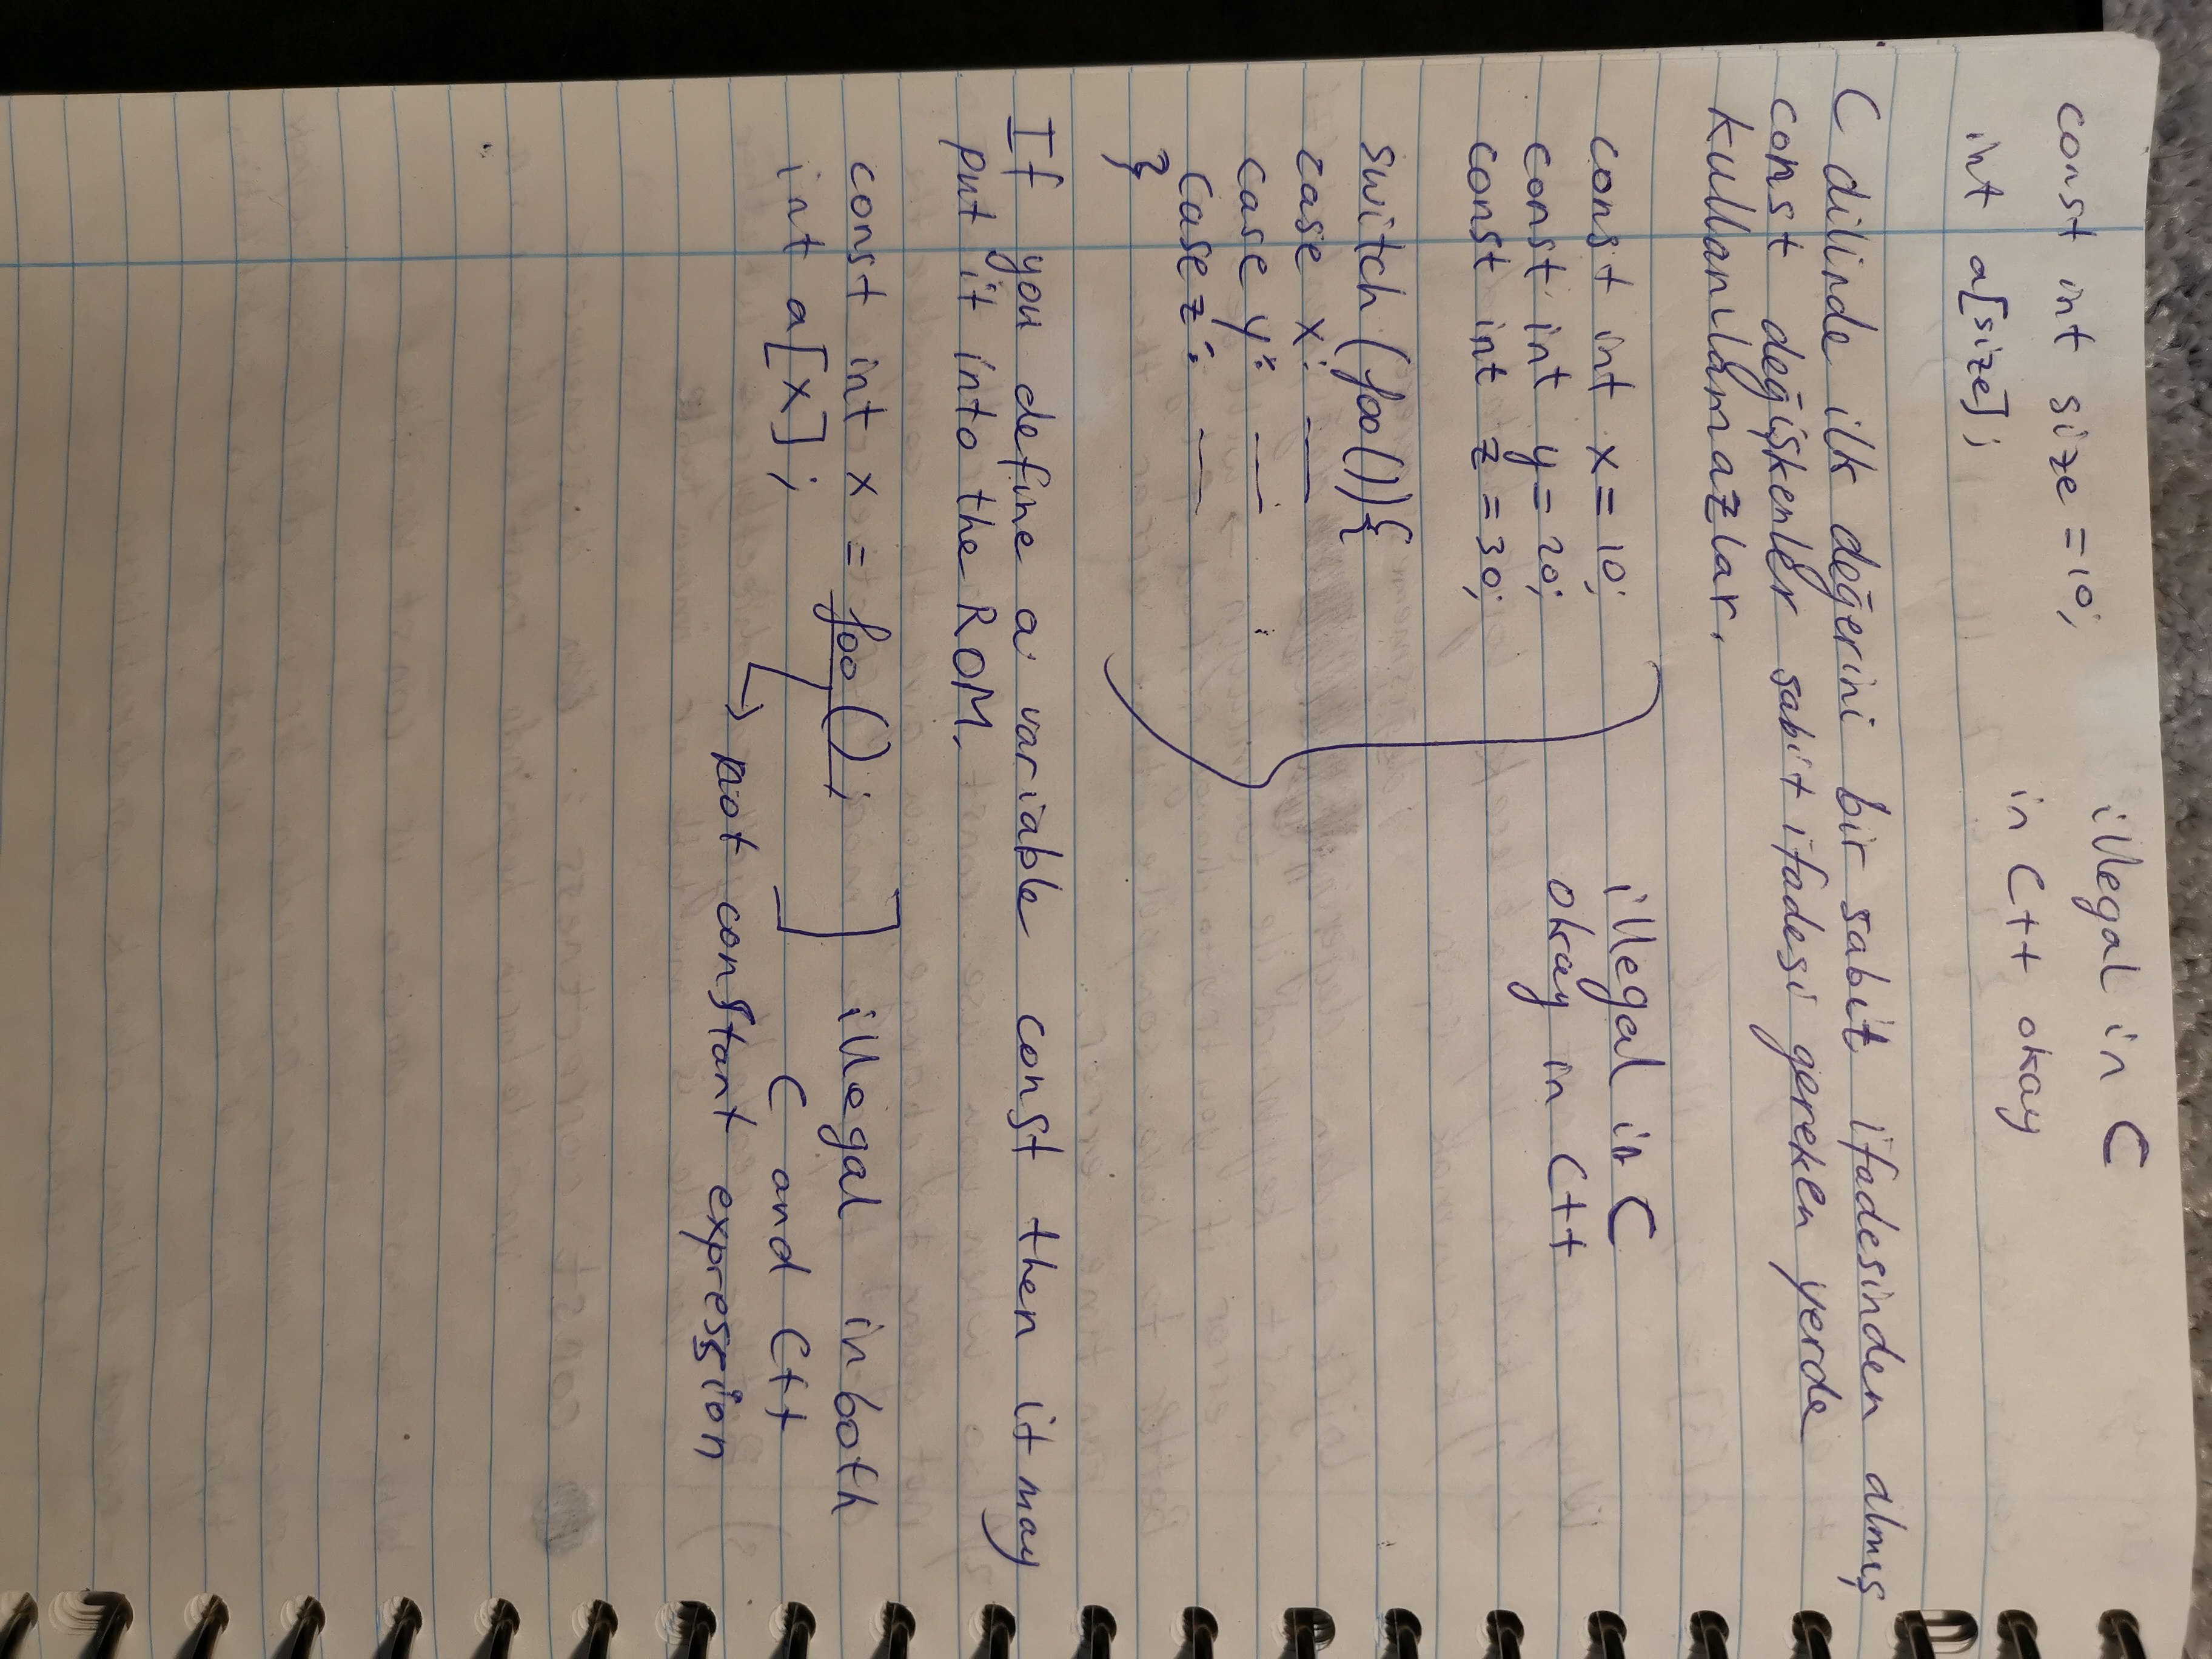 const int size = 10;
illegal in C
in C++ okay
int a[size];
C dilinde ilk değerini bir sabit ifadesinden almış
const değişkenler sabit ifadesi gereken yerde
kullanılamazlar.
const int x = 10;
const int y = 20;
const int z = 30;
illegal in C
okay in C++
switch (foo()){
case x: —
case y: —
case z: —
}
If you define a variable const then it may
put it into the ROM.
const int x = foo();
int a[x];
illegal in both
C and C++
not constant expression